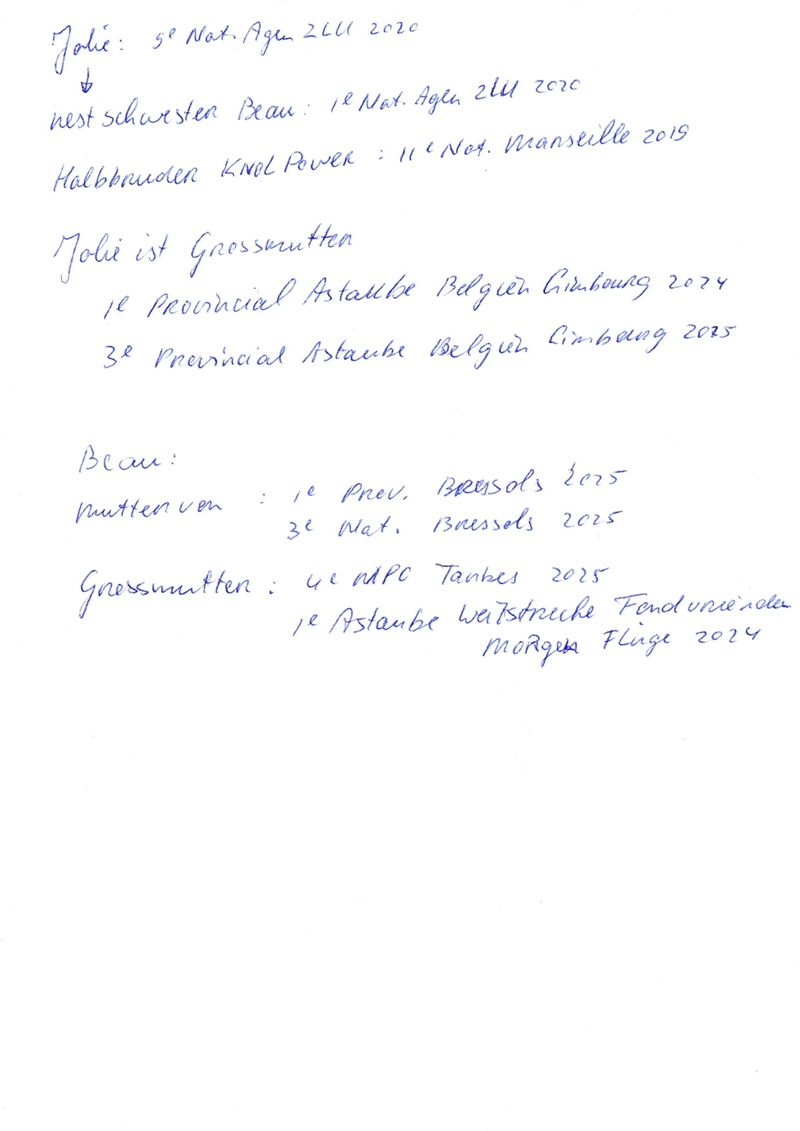 Jolie: 9e Nat. Agen ZLU 2020
nestschwester Beau: 1e Nat. Agen ZLU 2020
Halbbruder Knol Power: 11e Nat. Marseille 2019
Jolie ist Grossmutter
1e Provincial Astaube Belgiën Limbourg 2024
3e Provincial Astaube Belgiën Limbourg 2025
Beau:
Mutter von : 1e Prov. Bressols 2025
3e Nat. Bressols 2025
Grossmutter: 4e NPO Tarbes 2025
1e Astaube Weitstrecke Fondvrienden
Morgen Flüge 2024